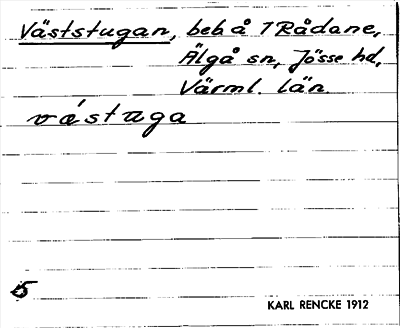 Väststugan, beb å 7 Rådane,
Älgå sn, Jösse hd,
Värml. län.
västuga
5
KARL RENCKE 1912